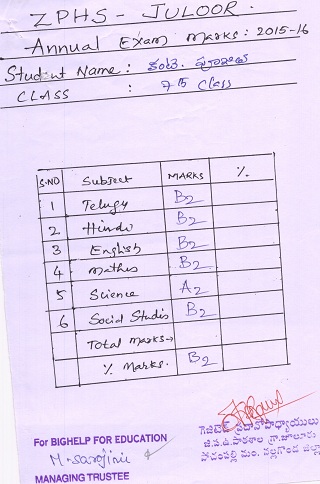 ZPHS - JULOOR.
Annual Exam Marks: 2015-16
Student Name :
CLASS : 7th Class
S.NO Subject MARKS %
1 Telugu B2
2 Hindi B2
3 English B2
4 Mathes B2
5 Science A2
6 Social Studis B2
Total Marks→
% Marks. B2
గెజిటెడ్ ప్రధానోపాధ్యాయులు
జి.ప.ఉ.పాఠశాల గ్రా.జూలూరు
పోచంపల్లి మం. నల్లగొండ జిల్లా
For BIGHELP FOR EDUCATION
M. Sarojini
MANAGING TRUSTEE